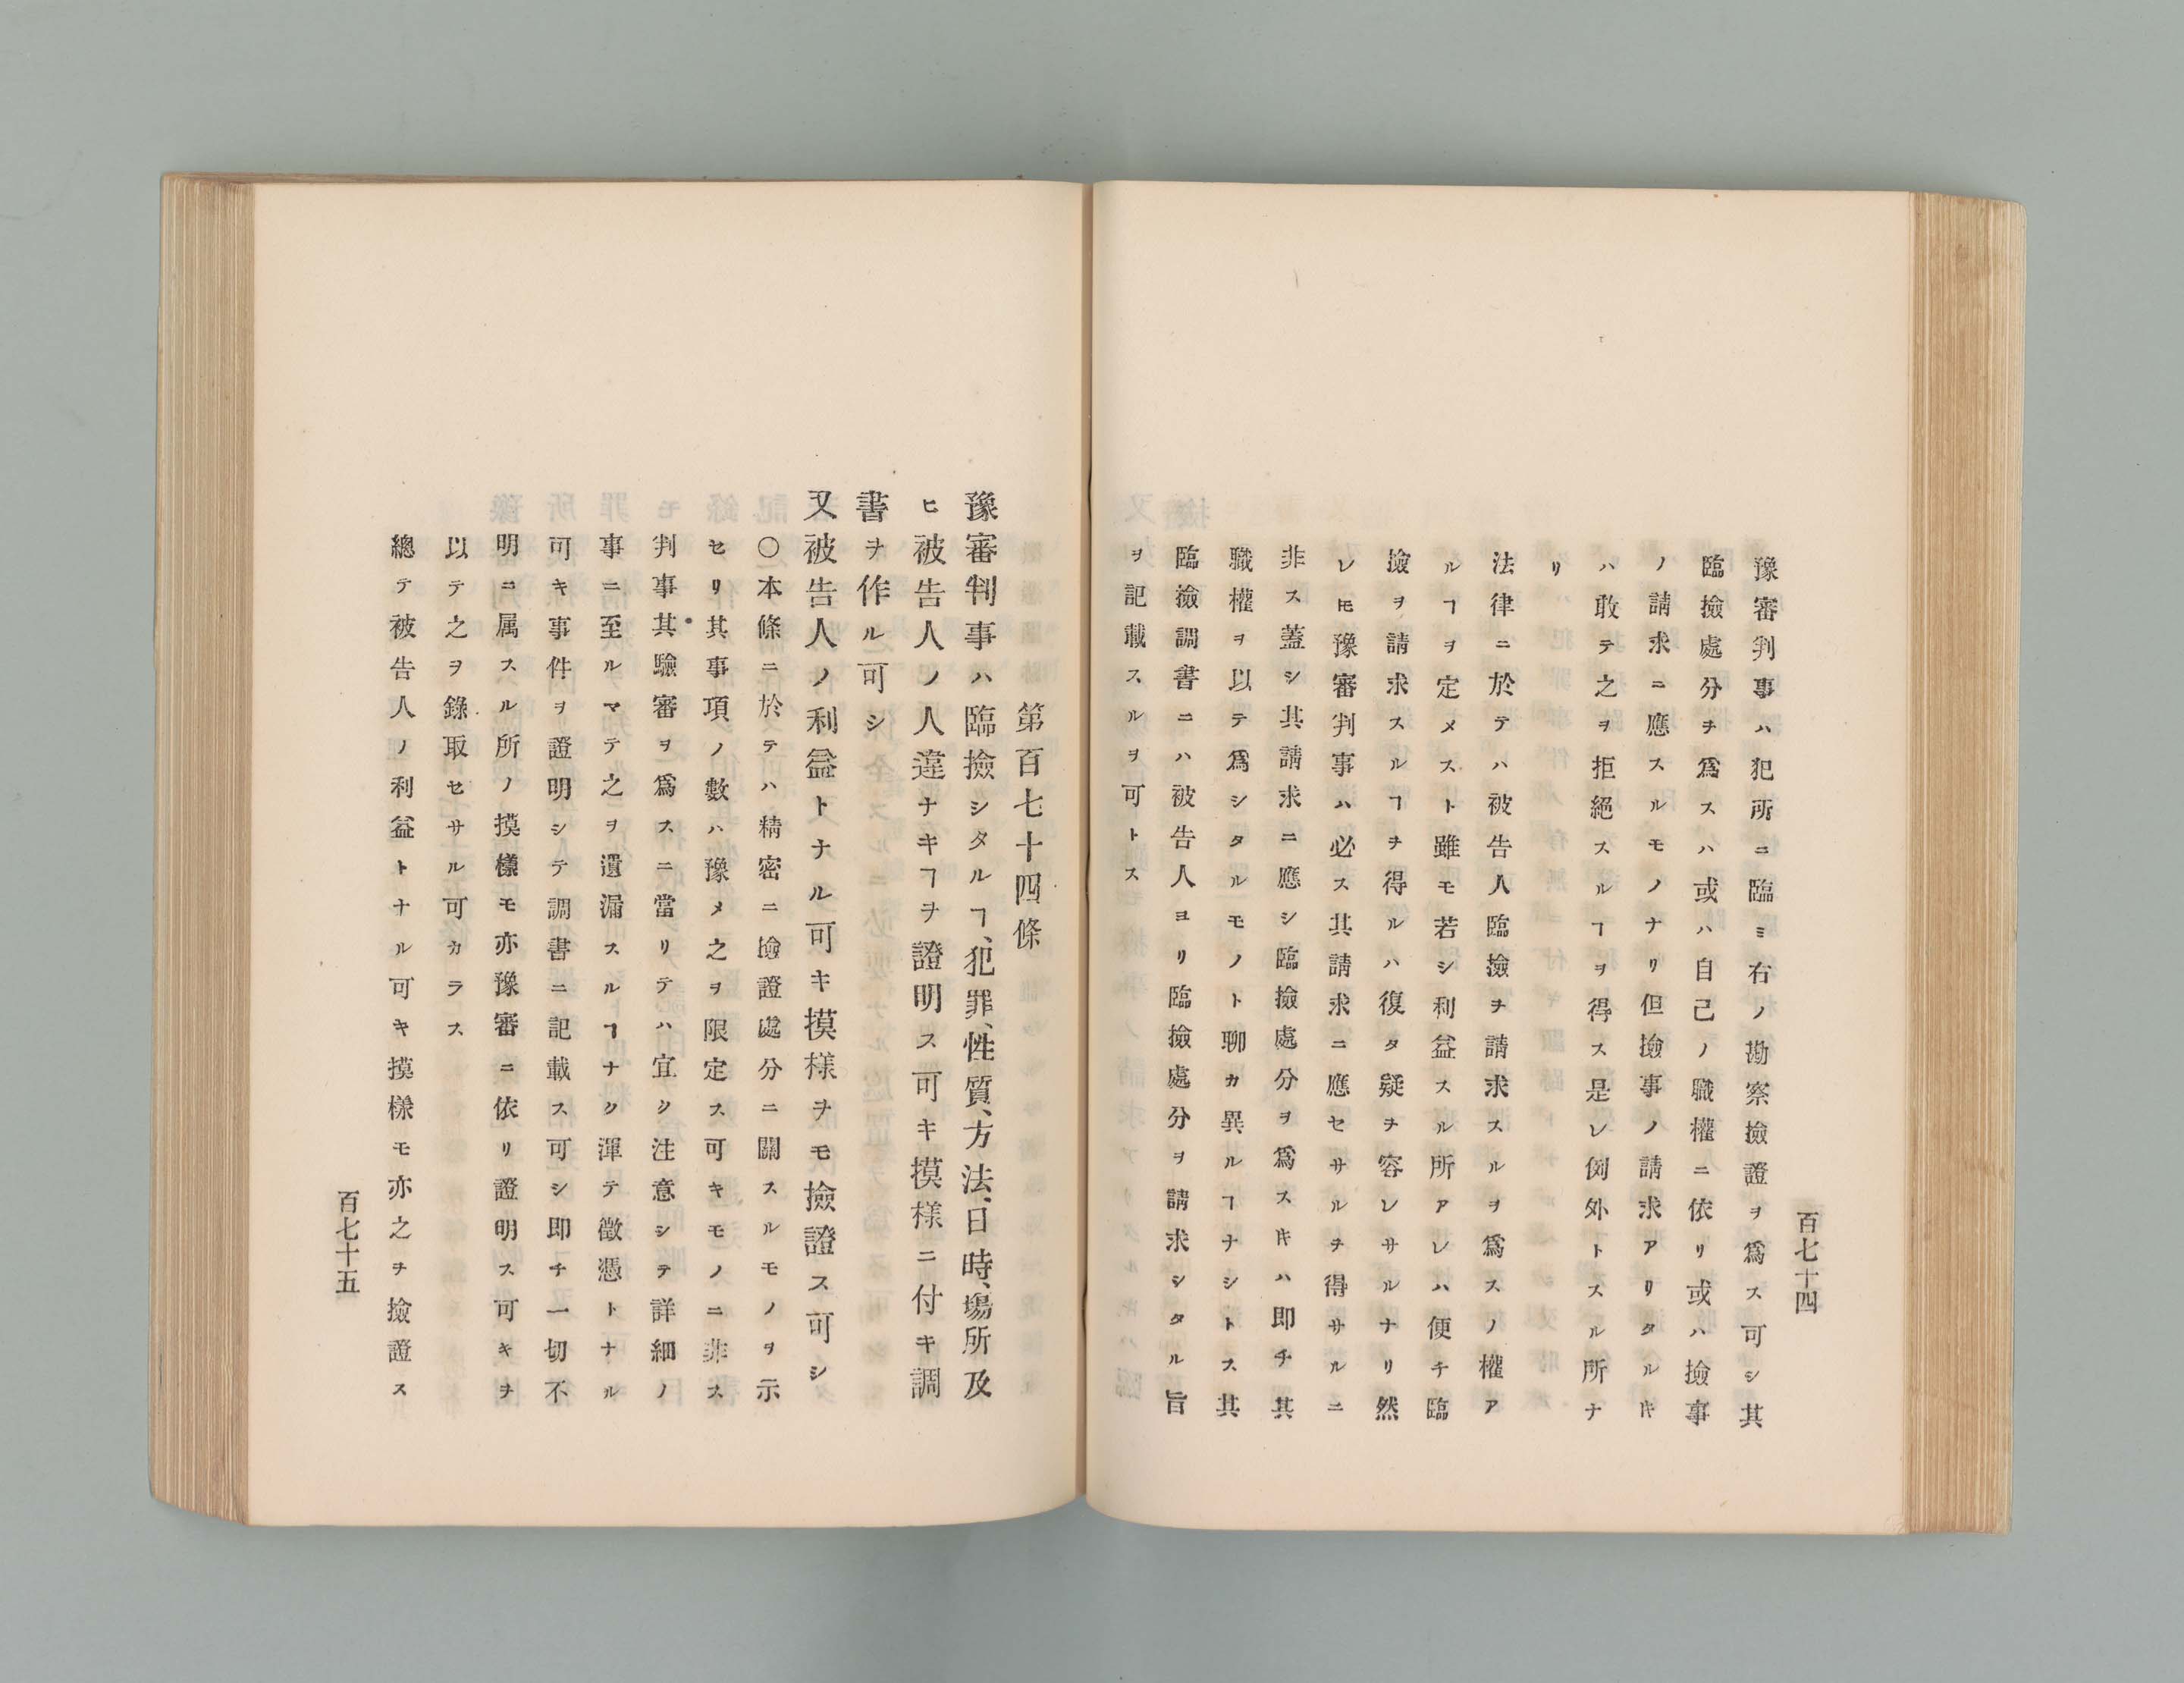 百七十四
豫審判事ハ犯所ニ臨ミ右ノ勘察撿證ヲ爲ス可シ其
臨撿處分ヲ爲スハ或ハ自己ノ職權ニ依リ或ハ撿事
ノ請求ニ應スルモノナリ但撿事ノ請求アリタルキ
ハ敢テ之ヲ拒絕スルヿヲ得ス是レ例外トスル所ナ
リ
法律ニ於テハ被告人臨撿ヲ請求スルヲ爲スノ權ア
ルヿヲ定メスト雖モ若シ利益スル所アレハ便チ臨
撿ヲ請求スルヿヲ得ルハ復タ疑ヲ容レサルナリ然
レ𪜈豫審判事ハ必ス其請求ニ應セサルヲ得サルニ
非ス蓋シ其請求ニ應シ臨撿處分ヲ爲スキハ即チ其
職權ヲ以テ爲シタルモノト聊カ異ルヿナシトス其
臨撿調書ニハ被告人ヨリ臨撿處分ヲ請求シタル旨
ヲ記載スルヲ可トス
第百七十四條
豫審判事ハ臨撿シタルヿ、犯罪、性質、方法、日時、塲所及
ヒ被告人ノ人違ナキヿヲ證明ス可キ摸樣ニ付キ調
書ヲ作ル可シ
又被告人ノ利益トナル可キ摸樣ヲモ撿證ス可シ
〇本條ニ於テハ精密ニ撿證處分ニ關スルモノヲ示
セリ其事項ノ數ハ豫メ之ヲ限定ス可キモノニ非ス
判事其驗審ヲ爲スニ當リテハ宜ク注意シテ詳細ノ
事ニ至ルマテ之ヲ遺漏スルヿナク渾テ徵憑トナル
可キ事件ヲ證明シテ調書ニ記載ス可シ即チ一切不
明ニ属スル所ノ摸樣モ亦豫審ニ依リ證明ス可キヲ
以テ之ヲ錄取セサル可カラス
總テ被告人ノ利益トナル可キ摸樣モ亦之ヲ撿證ス
百七十五